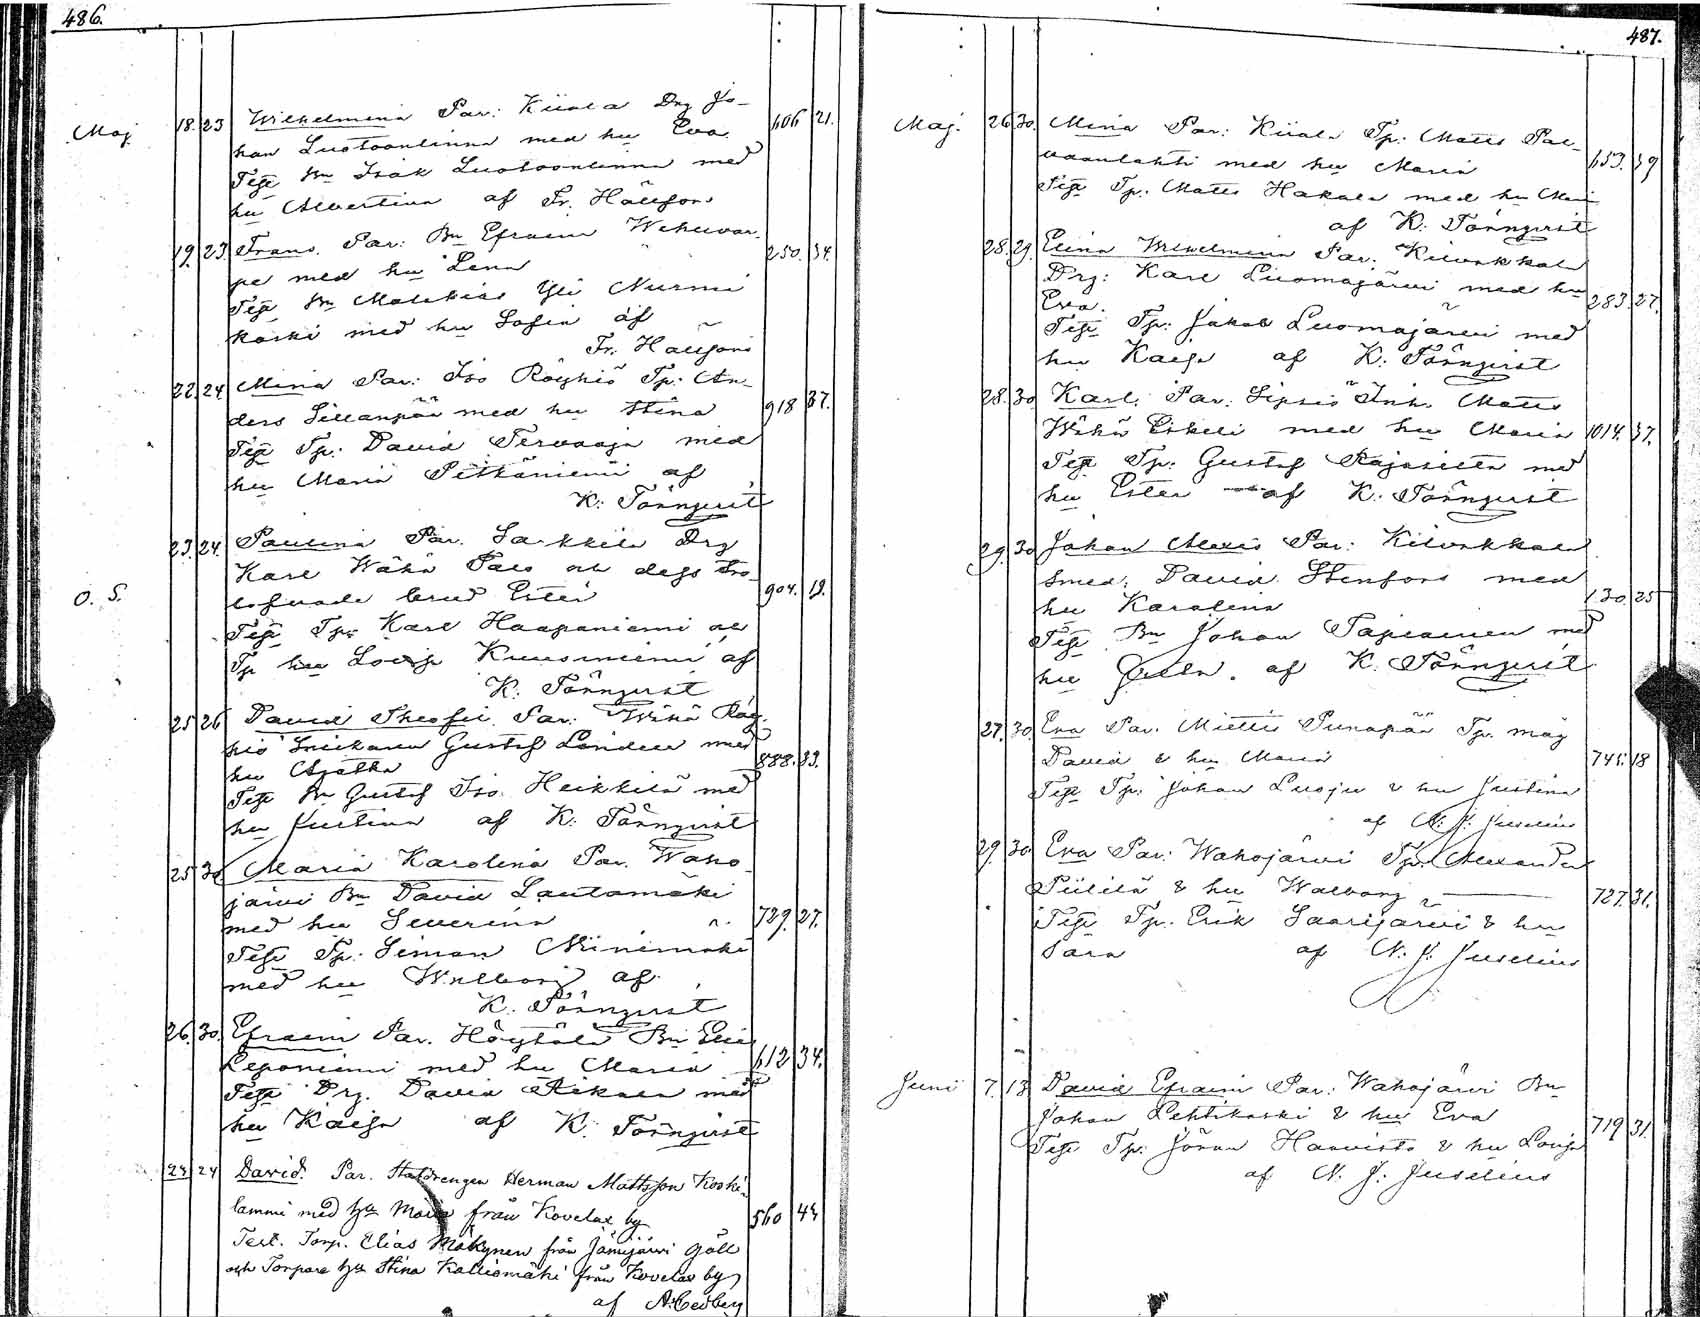 486.
Maj. 18. 23 Wilhelmina Par: Kiiala Drg Jo-
han Luotoonlinna med hu Eva. 606 21.
Test Bn Isak Luotoonlinna med
hu Albertina af Fr. Hällfors
19. 23. Frans. Par: Bn Efraim Wehuvar- 250. 34.
pe med hu Lena
Test Bn Mathias Yli Nurmi
koski med hu Sofia af
Fr. Hällfors
22. 24. Mina Par: Iso Röyhiö Tp: An-
ders Sillanpää med hu Stina 918 37.
Test Tp: David Tervaoja med
hu Maria Pitkäniemi af
K. Törnqvist
23. 24. Paulina Par. Sarkkila Drg
Karl Wähä Pals och dess tro-
O. S. lofvade brud Ester 904. 19.
Test Tp: Karl Haapaniemi och
Tp hu Lovisa Kuusiniemi af
K. Törnqvist
25 26 David Theofil. Par: Wähä Röy-
hiö Snickaren Gustaf Linden med
hu Agatha 888. 33.
Test Bn Gustaf Iso Heikkilä med
hu Justina af K. Törnqvist
25 30 Maria Karolina Par. Waho-
järvi Bn David Lautamäki
med hu Severina 729. 27.
Test Tp: Simon Niinimäki
med hu Walborg af
K. Törnqvist
26. 30. Efraim Par. Höytölä Bn Elias
Leponiemi med hu Maria 612 34.
Test Drg. David Rikala med
hu Kaisa af K. Törnqvist
23 24 David. Par. Staldrengen Herman Mattsson Koski-
lammi med hu Maria från Kovelax by 560 44
Test. Torp. Elias Mäkynen från Jämijärvi Gåll
och Torpare hu Stina Kalliomäki från Kovelax by
af A. Cedberg
487.
Maj. 26 30. Mina Par: Kiiala Tp: Matts Pal-
vaanlahti med hu Maria 653. 39
Test Tp. Matts Hakala med hu Mari
af K. Törnqvist
28. 29. Elina Wilhelmina Par. Kilvakkala
Drg: Karl Luomajärvi med hu
Eva. 283. 27.
Test Tp: Jakob Luomajärvi med
hu Kaisa af K. Törnqvist
28. 30 Karl. Par: Sipsiö Inh. Matts
Wähä Eskeli med hu Maria 1014. 37.
Test Tp: Gustaf Rajasilta med
hu Ester af K. Törnqvist
29. 30 Johan Alexis Par: Kilvakkala
Smed: David Stenfors med
hu Karolina 130. 25
Test Bn Johan Tapiainen med
hu Julia. af K. Törnqvist
27. 30. Eva Par. Miettis Punapää Tp. måg
David & hu Maria 745. 18
Test Tp: Johan Luoju & hu Justina
af N. J. Juselius
29. 30 Eva Par: Wahojärvi Tp: Alexander
Piililä & hu Walborg 727. 31.
Test Tp. Erik Saarijärvi & hu
Sara af N. J. Juselius
Juni 7. 13 David Efraim Par: Wahojärvi Bn
Johan Lehtikoski & hu Eva 719 31.
Test Tp: Jöran Haavisto & hu Lovisa
af N. J. Juselius